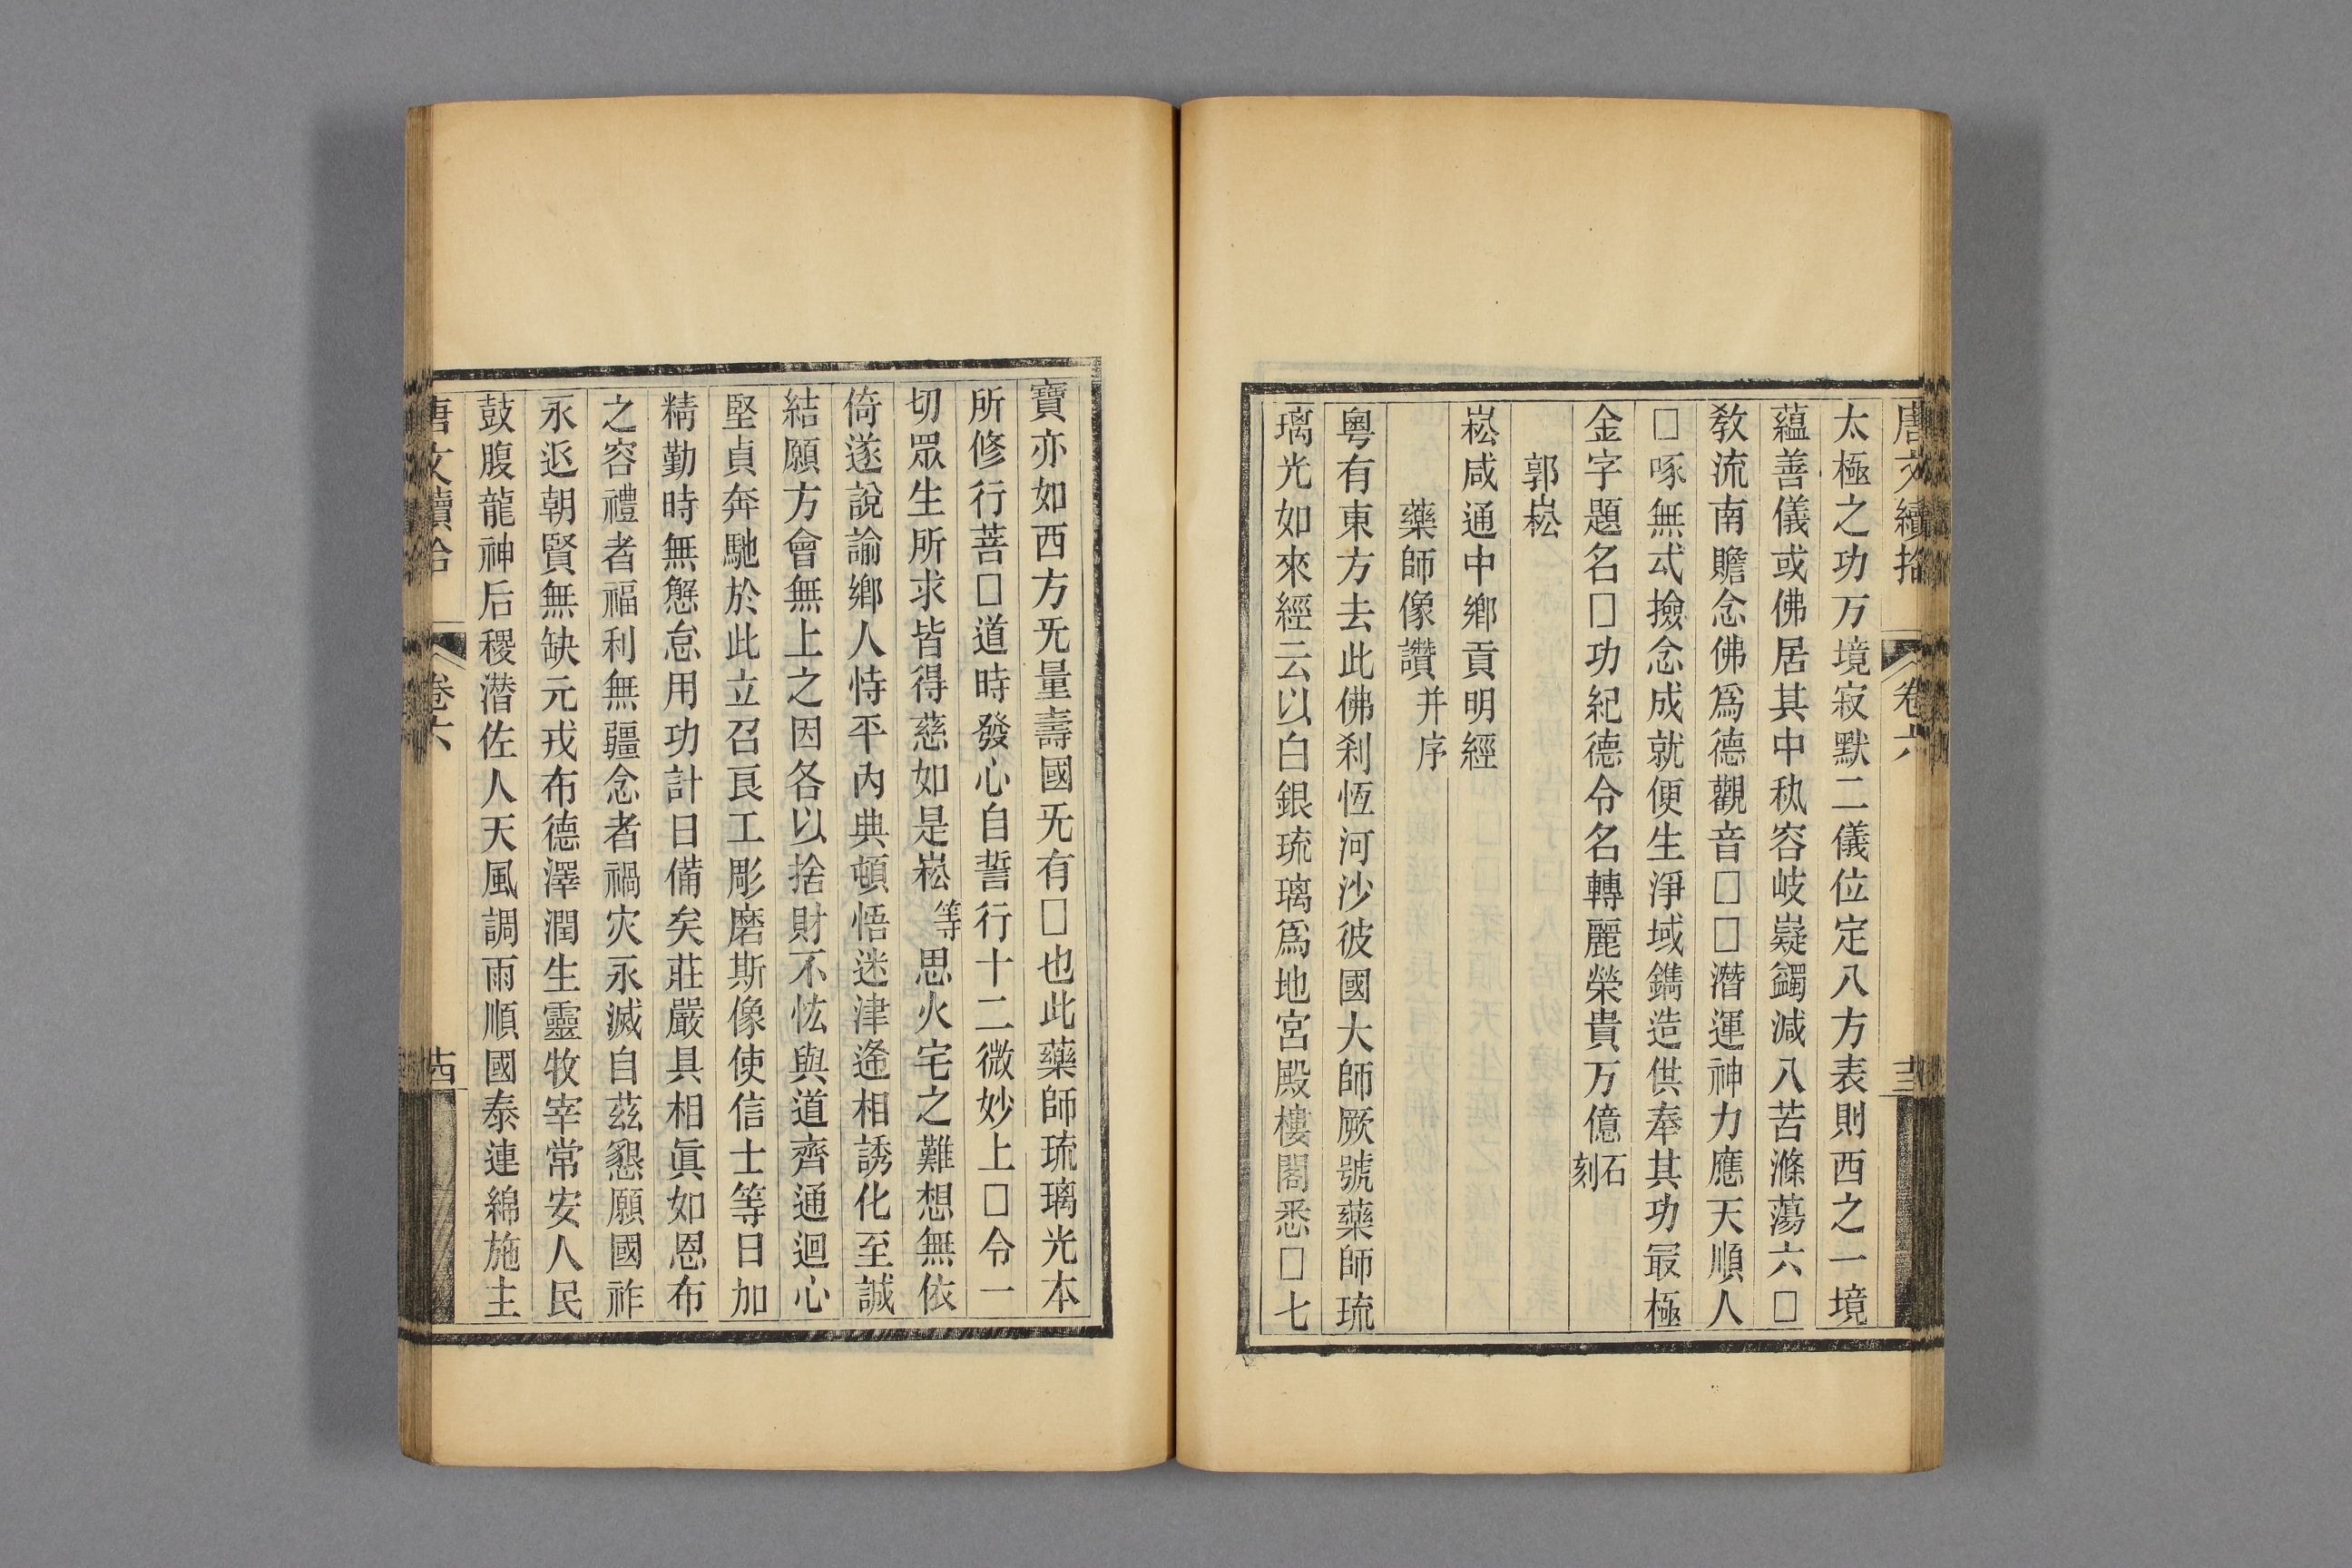 唐文續拾 卷六 十三
太極之功万境寂默二儀位定八方表則西之一境
蘊善儀或佛居其中秇容岐嶷蠲減八苦滌蕩六□
敎流南贍念佛爲德觀音□□潛運神力應天順人
□啄無弍撿念成就便生淨域鐫造供奉其功最極
金字題名□功紀德令名轉麗榮貴万億石刻
郭崧
崧咸通中鄉貢明經
藥師像讚并序
粵有東方去此佛刹恆河沙彼國大師厥號藥師琉
璃光如來經云以白銀琉璃爲地宮殿樓閣悉□七
寶亦如西方旡量壽國旡有□也此藥師琉璃光本
所修行菩□道時發心自誓行十二微妙上□令一
切眾生所求皆得慈如是崧等思火宅之難想無依
倚遂說諭鄉人恃平內典頓悟迷津遙相誘化至誠
結願方會無上之因各以捨財不怯與道齊通迴心
堅貞奔馳於此立召良工彫磨斯像使信士等日加
精勤時無懈怠用功計日備矣莊嚴具相眞如恩布
之容禮者福利無疆念者禍灾永滅自茲懇願國祚
永返朝賢無缺元戎布德澤潤生靈牧宰常安人民
鼓腹龍神后稷潛佐人天風調雨順國泰連綿施主
唐文續拾 卷六 十四